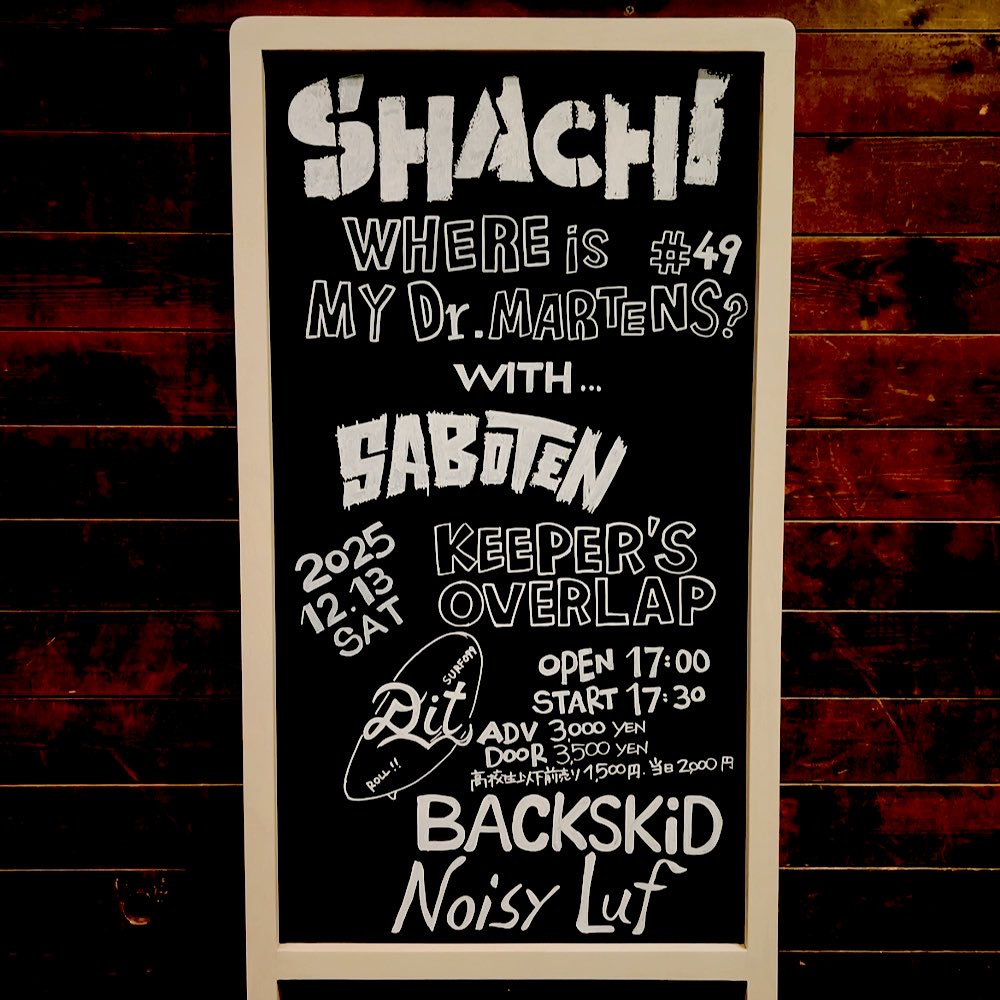 SHACHI
WHERE iS #49
MY Dr.MARTENS?
WITH...
SABOTEN
2025
12.13
SAT
KEEPER'S
OVERLAP
OPEN 17:00
START 17:30
ADV 3,000 YEN
DOOR 3,500 YEN
高校生以下前売り1,500円. 当日2,000円
Dit
ROLL!!
BACKSKiD
Noisy Luf